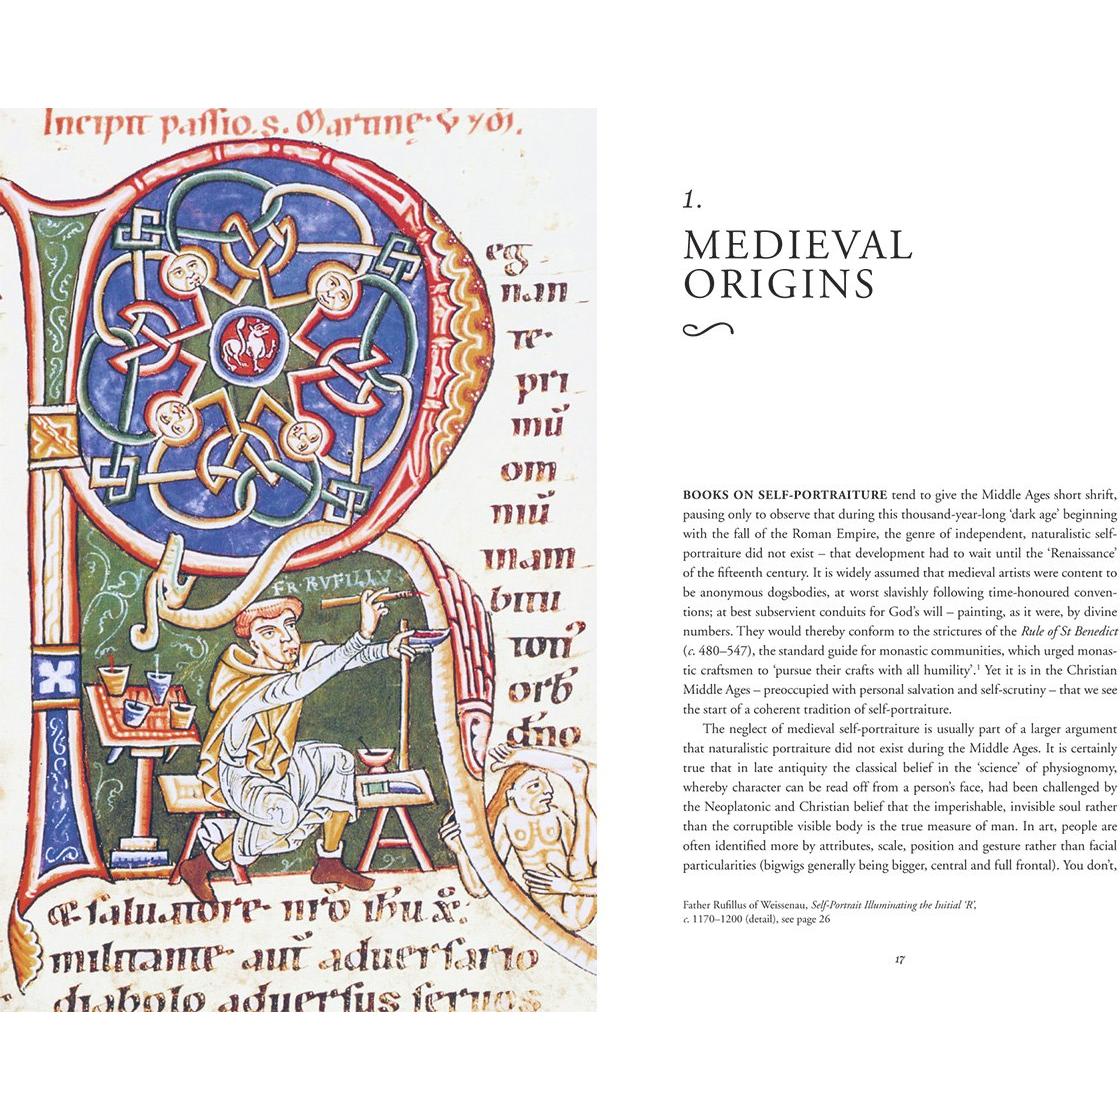 Incipit passio. S. Martine. V. xvi.
eg
nan
te.
pri
mū
om
niū
inam
bitu
FR. RVFILLVS
torū
orb
dn̄o
& saluatore. nr̄o ihu x̄:
militante aut̄ aduersario
diabolo aduersus seruos
1.
MEDIEVAL
ORIGINS
BOOKS ON SELF-PORTRAITURE tend to give the Middle Ages short shrift,
pausing only to observe that during this thousand-year-long ‘dark age’ beginning
with the fall of the Roman Empire, the genre of independent, naturalistic self-
portraiture did not exist – that development had to wait until the ‘Renaissance’
of the fifteenth century. It is widely assumed that medieval artists were content to
be anonymous dogsbodies, at worst slavishly following time-honoured conven-
tions; at best subservient conduits for God’s will – painting, as it were, by divine
numbers. They would thereby conform to the strictures of the Rule of St Benedict
(c. 480–547), the standard guide for monastic communities, which urged monas-
tic craftsmen to ‘pursue their crafts with all humility’.¹ Yet it is in the Christian
Middle Ages – preoccupied with personal salvation and self-scrutiny – that we see
the start of a coherent tradition of self-portraiture.
The neglect of medieval self-portraiture is usually part of a larger argument
that naturalistic portraiture did not exist during the Middle Ages. It is certainly
true that in late antiquity the classical belief in the ‘science’ of physiognomy,
whereby character can be read off from a person’s face, had been challenged by
the Neoplatonic and Christian belief that the imperishable, invisible soul rather
than the corruptible visible body is the true measure of man. In art, people are
often identified more by attributes, scale, position and gesture rather than facial
particularities (bigwigs generally being bigger, central and full frontal). You don’t,
Father Rufillus of Weissenau, Self-Portrait Illuminating the Initial ‘R’,
c. 1170–1200 (detail), see page 26
17